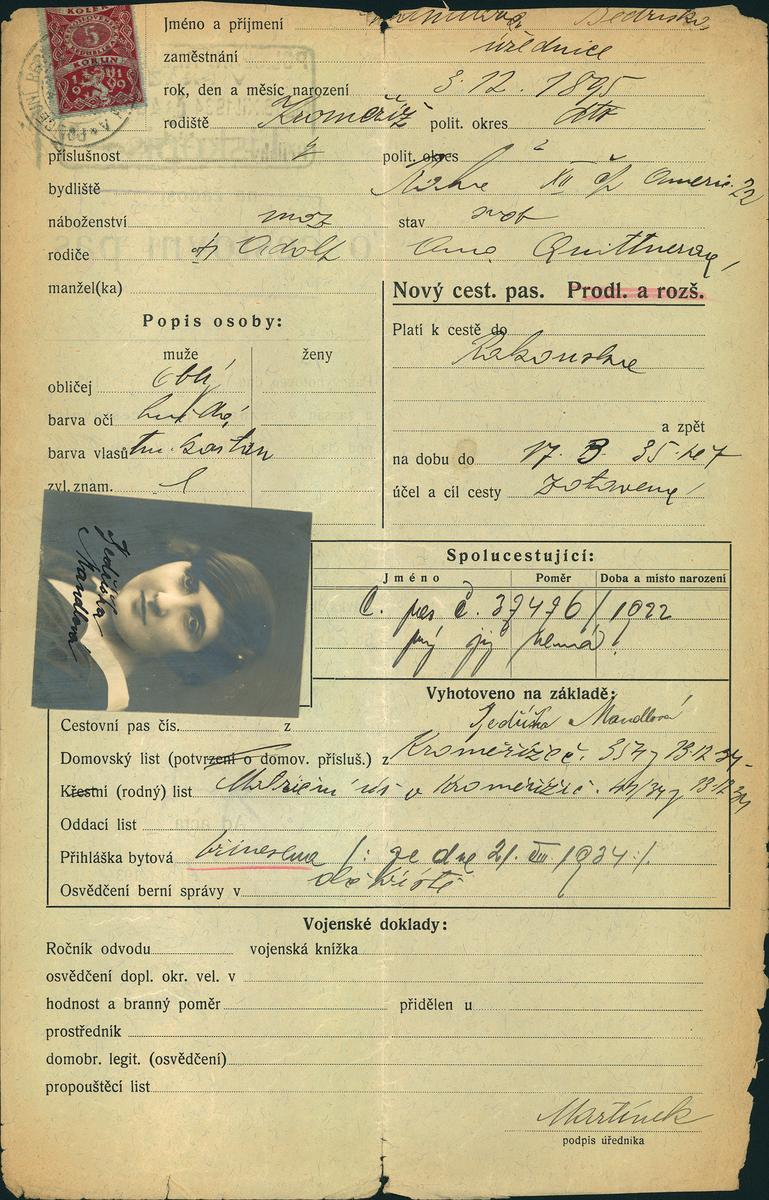 KOLEK
5
KORUN
1919
Jméno a příjmení Bedřiska
zaměstnání úřednice
rok, den a měsíc narození 3. 12. 1895
rodiště Kroměříž polit. okres dto
příslušnost polit. okres
bydliště XII čp Americ. 22
náboženství moz stav svob
rodiče Adolf Quittnerová
manžel(ka)
Nový cest. pas. Prodl. a rozš.
Popis osoby:
muže ženy
obličej oblý
barva očí hnědé
barva vlasů tm. kaštan
zvl. znam.
Platí k cestě do
Rakouska
a zpět
na dobu do 17. 3. 35
účel a cíl cesty zotavení
Bedřiška
Mandlová
Spolucestující:
Jméno Poměr Doba a místo narození
č. pas č. 37476 / 1922
jiný jej nemá!
Vyhotoveno na základě:
Cestovní pas čís. z Bedřiška Mandlová
Domovský list (potvrzení o domov. přísluš.) z Kroměříže č. 13.12.34
Křestní (rodný) list Matriční úř. v Kroměříži č. 13.12.34
Oddací list
Přihláška bytová přinesena /: ze dne 21. 1934 :/
Osvědčení berní správy v
Vojenské doklady:
Ročník odvodu vojenská knížka
osvědčení dopl. okr. vel. v
hodnost a branný poměr přidělen u
prostředník
domobr. legit. (osvědčení)
propouštěcí list
Martínek
podpis úředníka